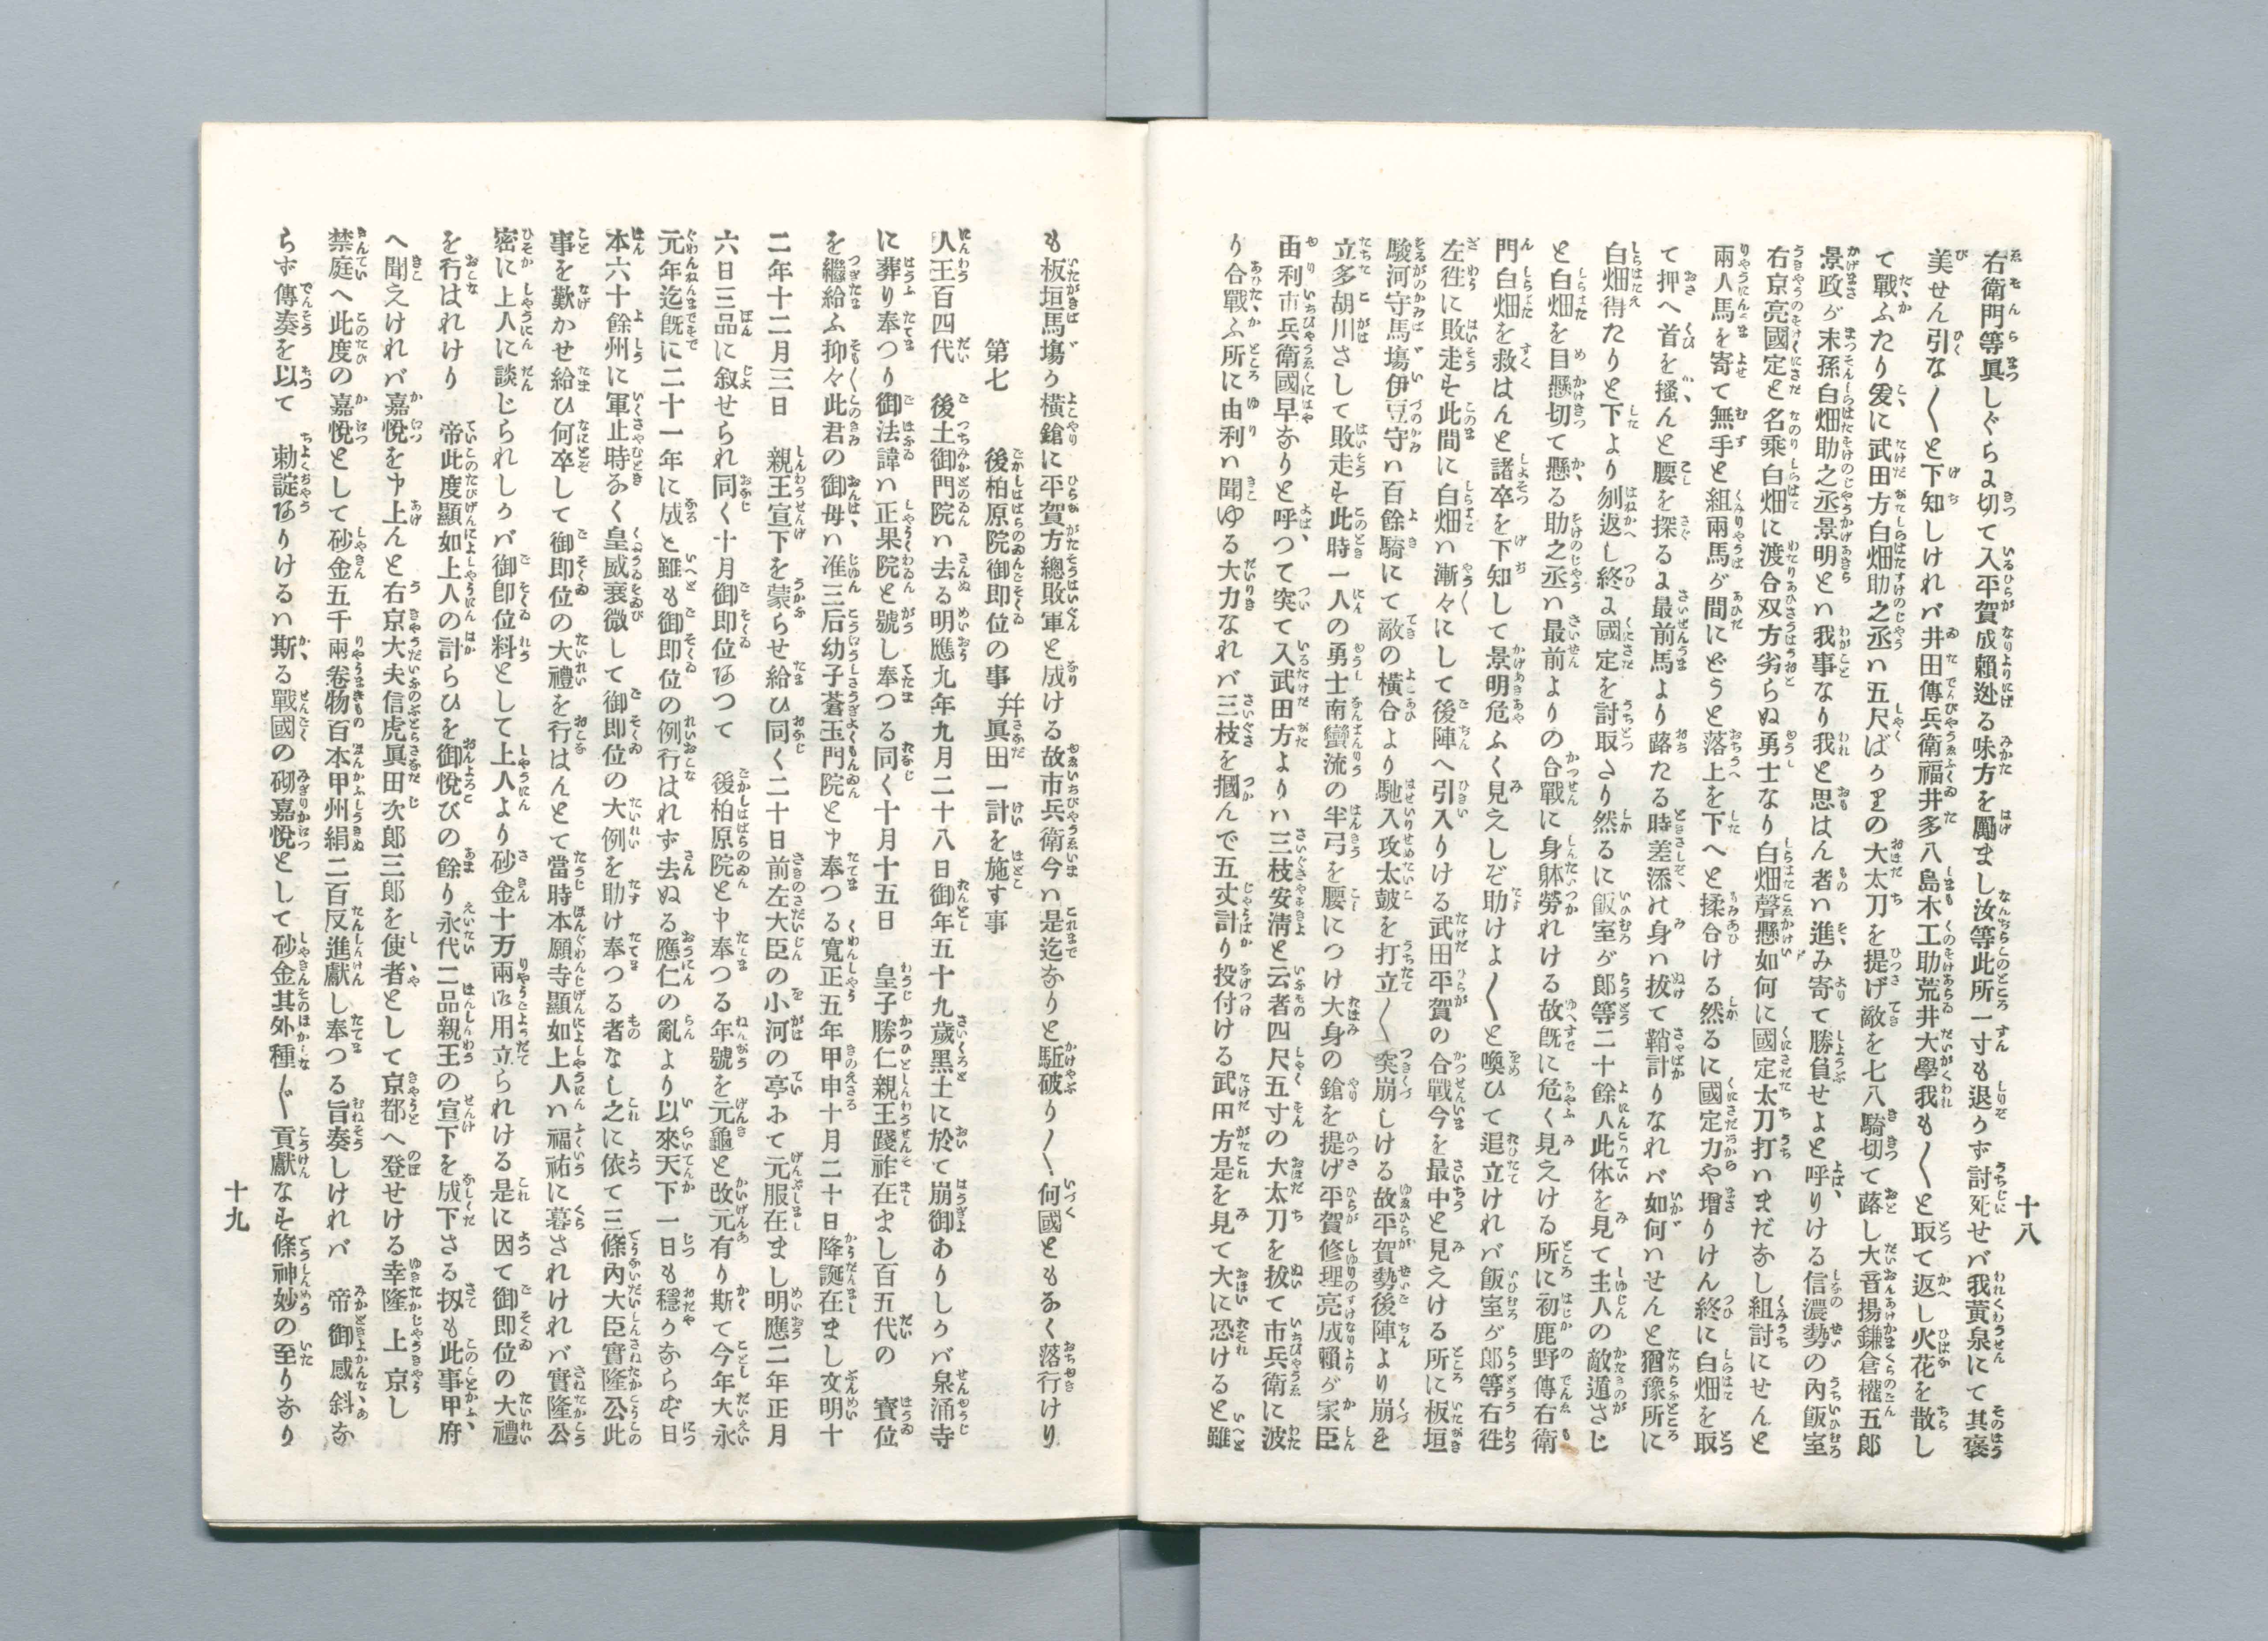 十八
右衛門等眞しぐらに切て入平賀成賴迯る味方を勵まし汝等此所一寸も退かず討死せバ我黄泉にて其褒
美せん引な〱と下知しけれバ井田傳兵衛福井多八島木工助荒井大學我も〱と取て返し火花を散し
て戰ふたり爰に武田方白畑助之丞ハ五尺ばかりの大太刀を提げ敵を七八騎切て蕗し大音揚鎌倉權五郎
景政が末孫白畑助之丞景明とハ我事なり我と思はん者ハ進み寄て勝負せよと呼りける信濃勢の內飯室
右京亮國定と名乘白畑に渡合双方劣らぬ勇士なり白畑聲懸如何に國定太刀打ハまだなし組討にせんと
兩人馬を寄て無手と組兩馬が間にどうと落上を下へと揉合ける然るに國定力や增りけん終に白畑を取
て押へ首を搔んと腰を探るに最前馬より蕗たる時差添ハ身ハ拔て鞘計りなれバ如何ハせんと猶豫所に
白畑得たりと下より刎返し終に國定を討取たり然るに飯室が郎等二十餘人此体を見て主人の敵遁さじ
と白畑を目懸切て懸る助之丞ハ最前よりの合戰に身躰勞れける故旣に危く見えける所に初鹿野傳右衛
門白畑を救はんと諸卒を下知して景明危ふく見えしぞ助けよ〱と喚ひて追立けれバ飯室が郎等右徃
左徃に敗走を此間に白畑ハ漸々にして後陣へ引入りける武田平賀の合戰今を最中と見えける所に板垣
駿河守馬塲伊豆守ハ百餘騎にて敵の橫合より馳入攻太皷を打立〱突崩しける故平賀勢後陣より崩を
立多胡川さして敗走を此時一人の勇士南蠻流の半弓を腰につけ大身の鎗を提げ平賀修理亮成賴が家臣
由利市兵衛國早なりと呼つて突て入武田方よりハ三枝安淸と云者四尺五寸の大太刀を拔て市兵衛に波
り合戰ふ所に由利ハ聞ゆる大力なれバ三枝を摑んで五丈計り投付ける武田方是を見て大に恐けると雖
も板垣馬塲が橫鎗に平賀方總敗軍と成ける故市兵衛今ハ是迄なりと駈破り〱何國ともなく落行けり
第七　後柏原院御即位の事幷眞田一計を施す事
人王百四代　後土御門院ハ去る明應九年九月二十八日御年五十九歲黑土に於て崩御ありしかバ泉涌寺
に葬り奉つり御法諱ハ正果院と號し奉つる同く十月十五日　皇子勝仁親王踐祚在まし百五代の　寳位
を繼給ふ抑々此君の御母ハ准三后幼子蒼玉門院と申奉つる寬正五年甲申十月二十日降誕在まし文明十
二年十二月三日　親王宣下を蒙らせ給ひ同く二十日前左大臣の小河の亭みて元服在まし明應二年正月
六日三品に叙せられ同く十月御即位ありて　後柏原院と申奉つる年號を元龜と改元有り斯て今年大永
元年迄旣に二十一年に成と雖も御即位の例行はれず去ぬる應仁の亂より以來天下一日も穩かならず日
本六十餘州に軍止時なく皇威衰微して御即位の大例を助け奉つる者なし之に依て三條內大臣實隆公此
事を歎かせ給ひ何卒して御即位の大禮を行はんとて當時本願寺顯如上人ハ福祐に暮されけれバ實隆公
密に上人に談じられしかバ御卽位料として上人より砂金十万兩御用立られける是に因て御即位の大禮
を行はれけり　帝此度顯如上人の計らひを御悅びの餘り永代二品親王の宣下を成下さる扨も此事甲府
へ聞えけれバ嘉悅を申上んと右京大夫信虎眞田次郎三郎を使者として京都へ登せける幸隆上京し
禁庭へ此度の嘉悅として砂金五千兩卷物百本甲州絹二百反進獻し奉つる旨奏しけれバ　帝御感斜な
らず傳奏を以て　勅諚ありけるハ斯る戰國の砌嘉悅として砂金其外種〲貢獻なを條神妙の至りなり
十九